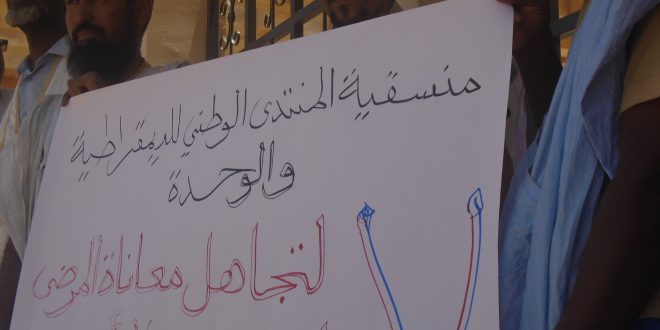 منسقية المنتدى الوطني للديمقراطية
والوحدة
لا لتجاهل معاناة المرضى